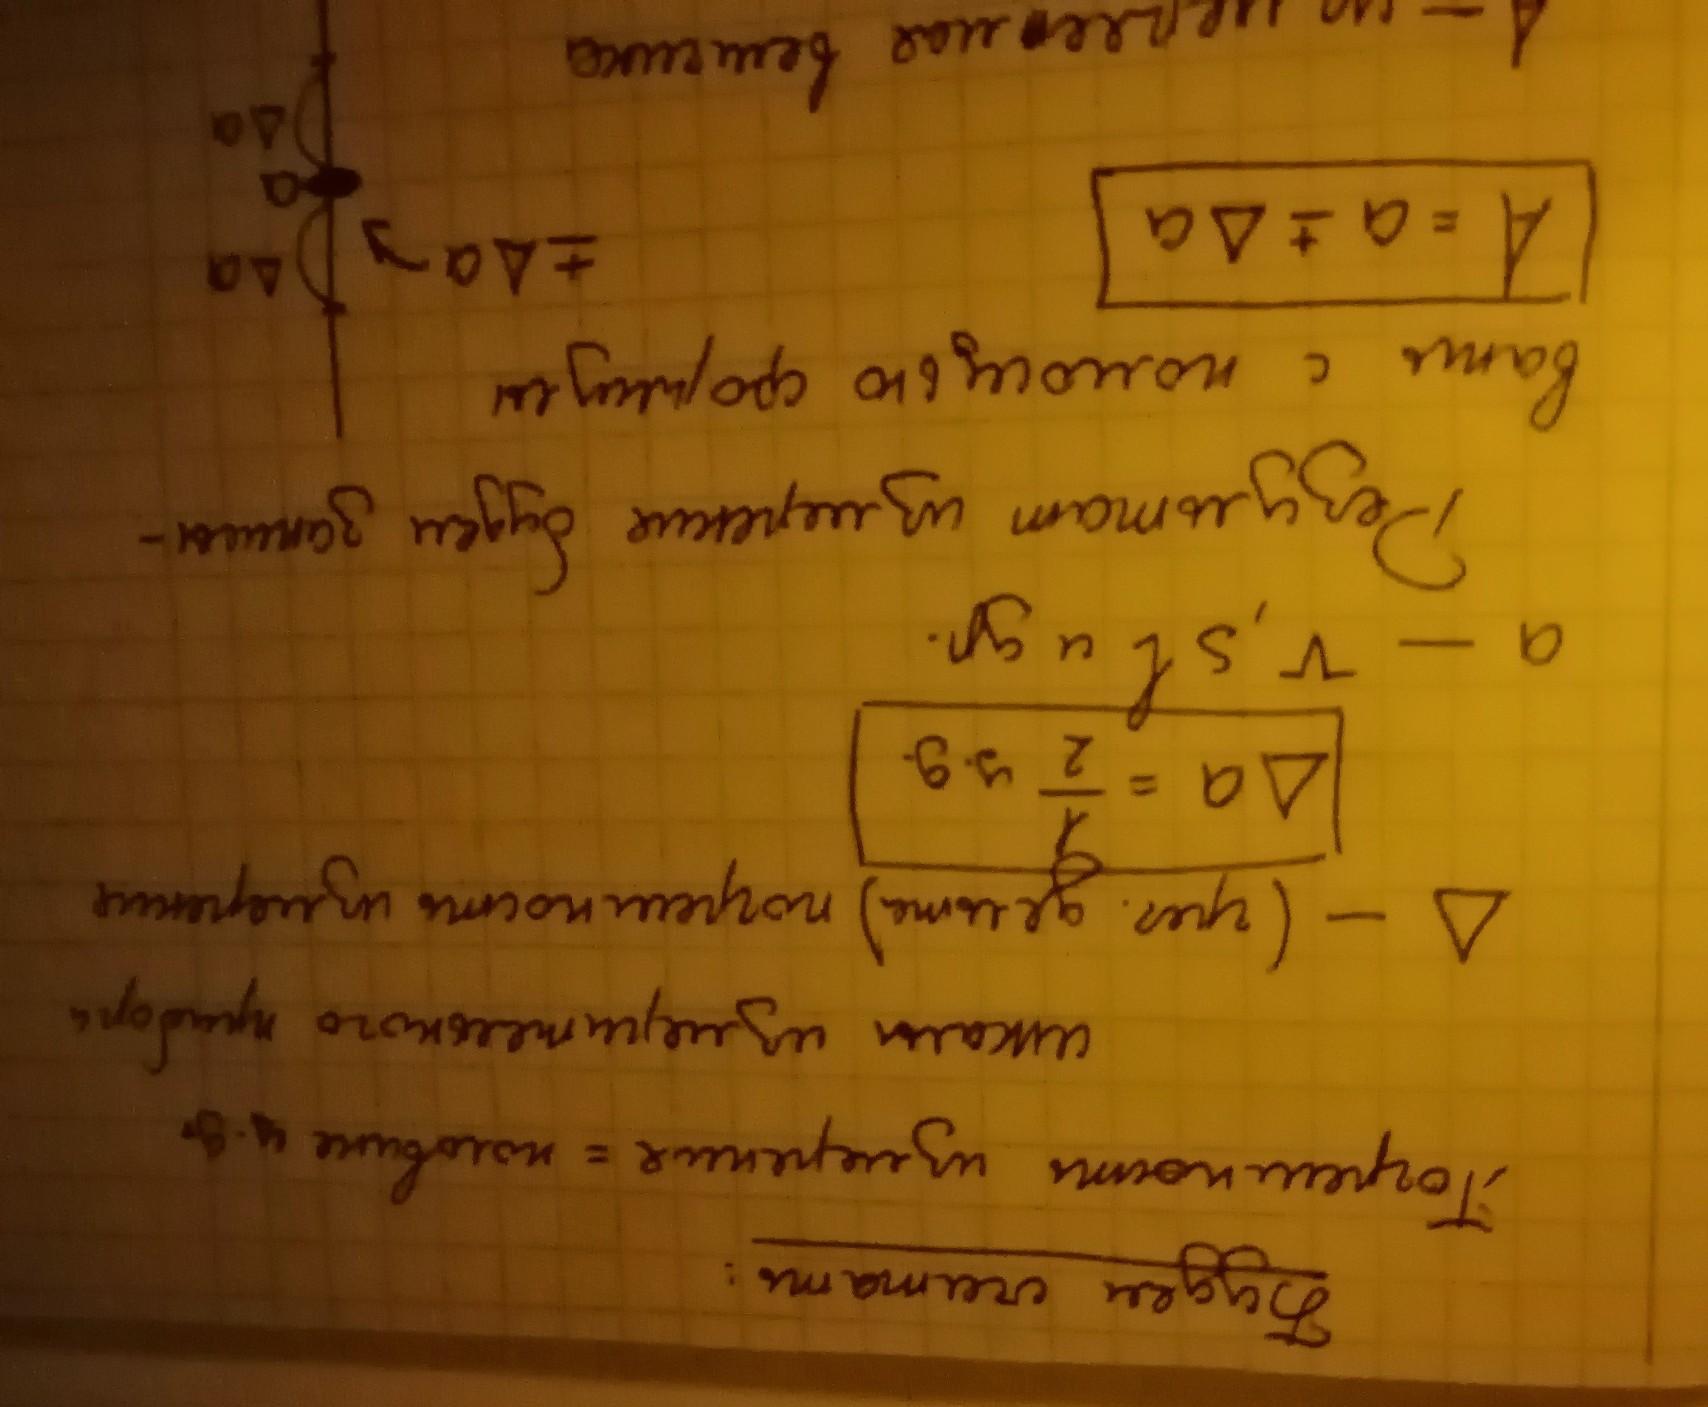 Будем считать:
Погрешность измерения = половине ц.д.
шкалы измерительного прибора
Δ — (греч. дельта) погрешность измерения
Δa = 1/2 ц.д.
a — V, S, l и др.
Результат измерение будем записы-
вать с помощью формулы
A = a ± Δa
± Δa
Δa
a
Δa
A — измеренная величина